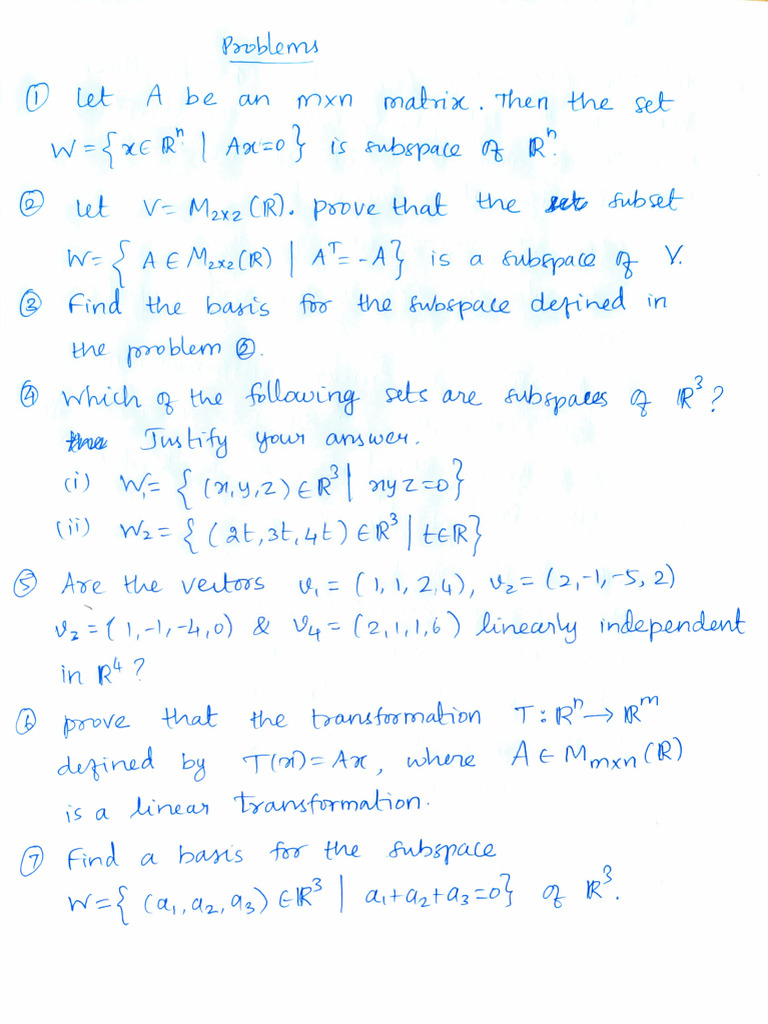 Problems
① Let A be an mxn matrix. Then the set
W = {x ∈ ℝⁿ | Ax=0} is subspace of ℝⁿ.
② Let V= M₂ₓ₂(ℝ). prove that the set subset
W= { A ∈ M₂ₓ₂(ℝ) | Aᵀ= -A} is a subspace of V.
③ Find the basis for the subspace defined in
the problem ②.
④ Which of the following sets are subspaces of ℝ³?
Justify your answer.
(i) W₁= { (x,y,z) ∈ ℝ³ | xyz=0}
(ii) W₂ = { (2t,3t,4t) ∈ ℝ³ | t∈ℝ}
⑤ Are the vectors v₁ = (1,1,2,4), v₂= (2,-1,-5,2)
v₃=(1,-1,-4,0) & v₄= (2,1,1,6) linearly independent
in ℝ⁴?
⑥ prove that the transformation T: ℝⁿ → ℝᵐ
defined by T(x)= Ax, where A ∈ Mₘₓₙ(ℝ)
is a linear transformation.
⑦ Find a basis for the subspace
W={ (a₁,a₂,a₃) ∈ℝ³ | a₁+a₂+a₃=0} of ℝ³.